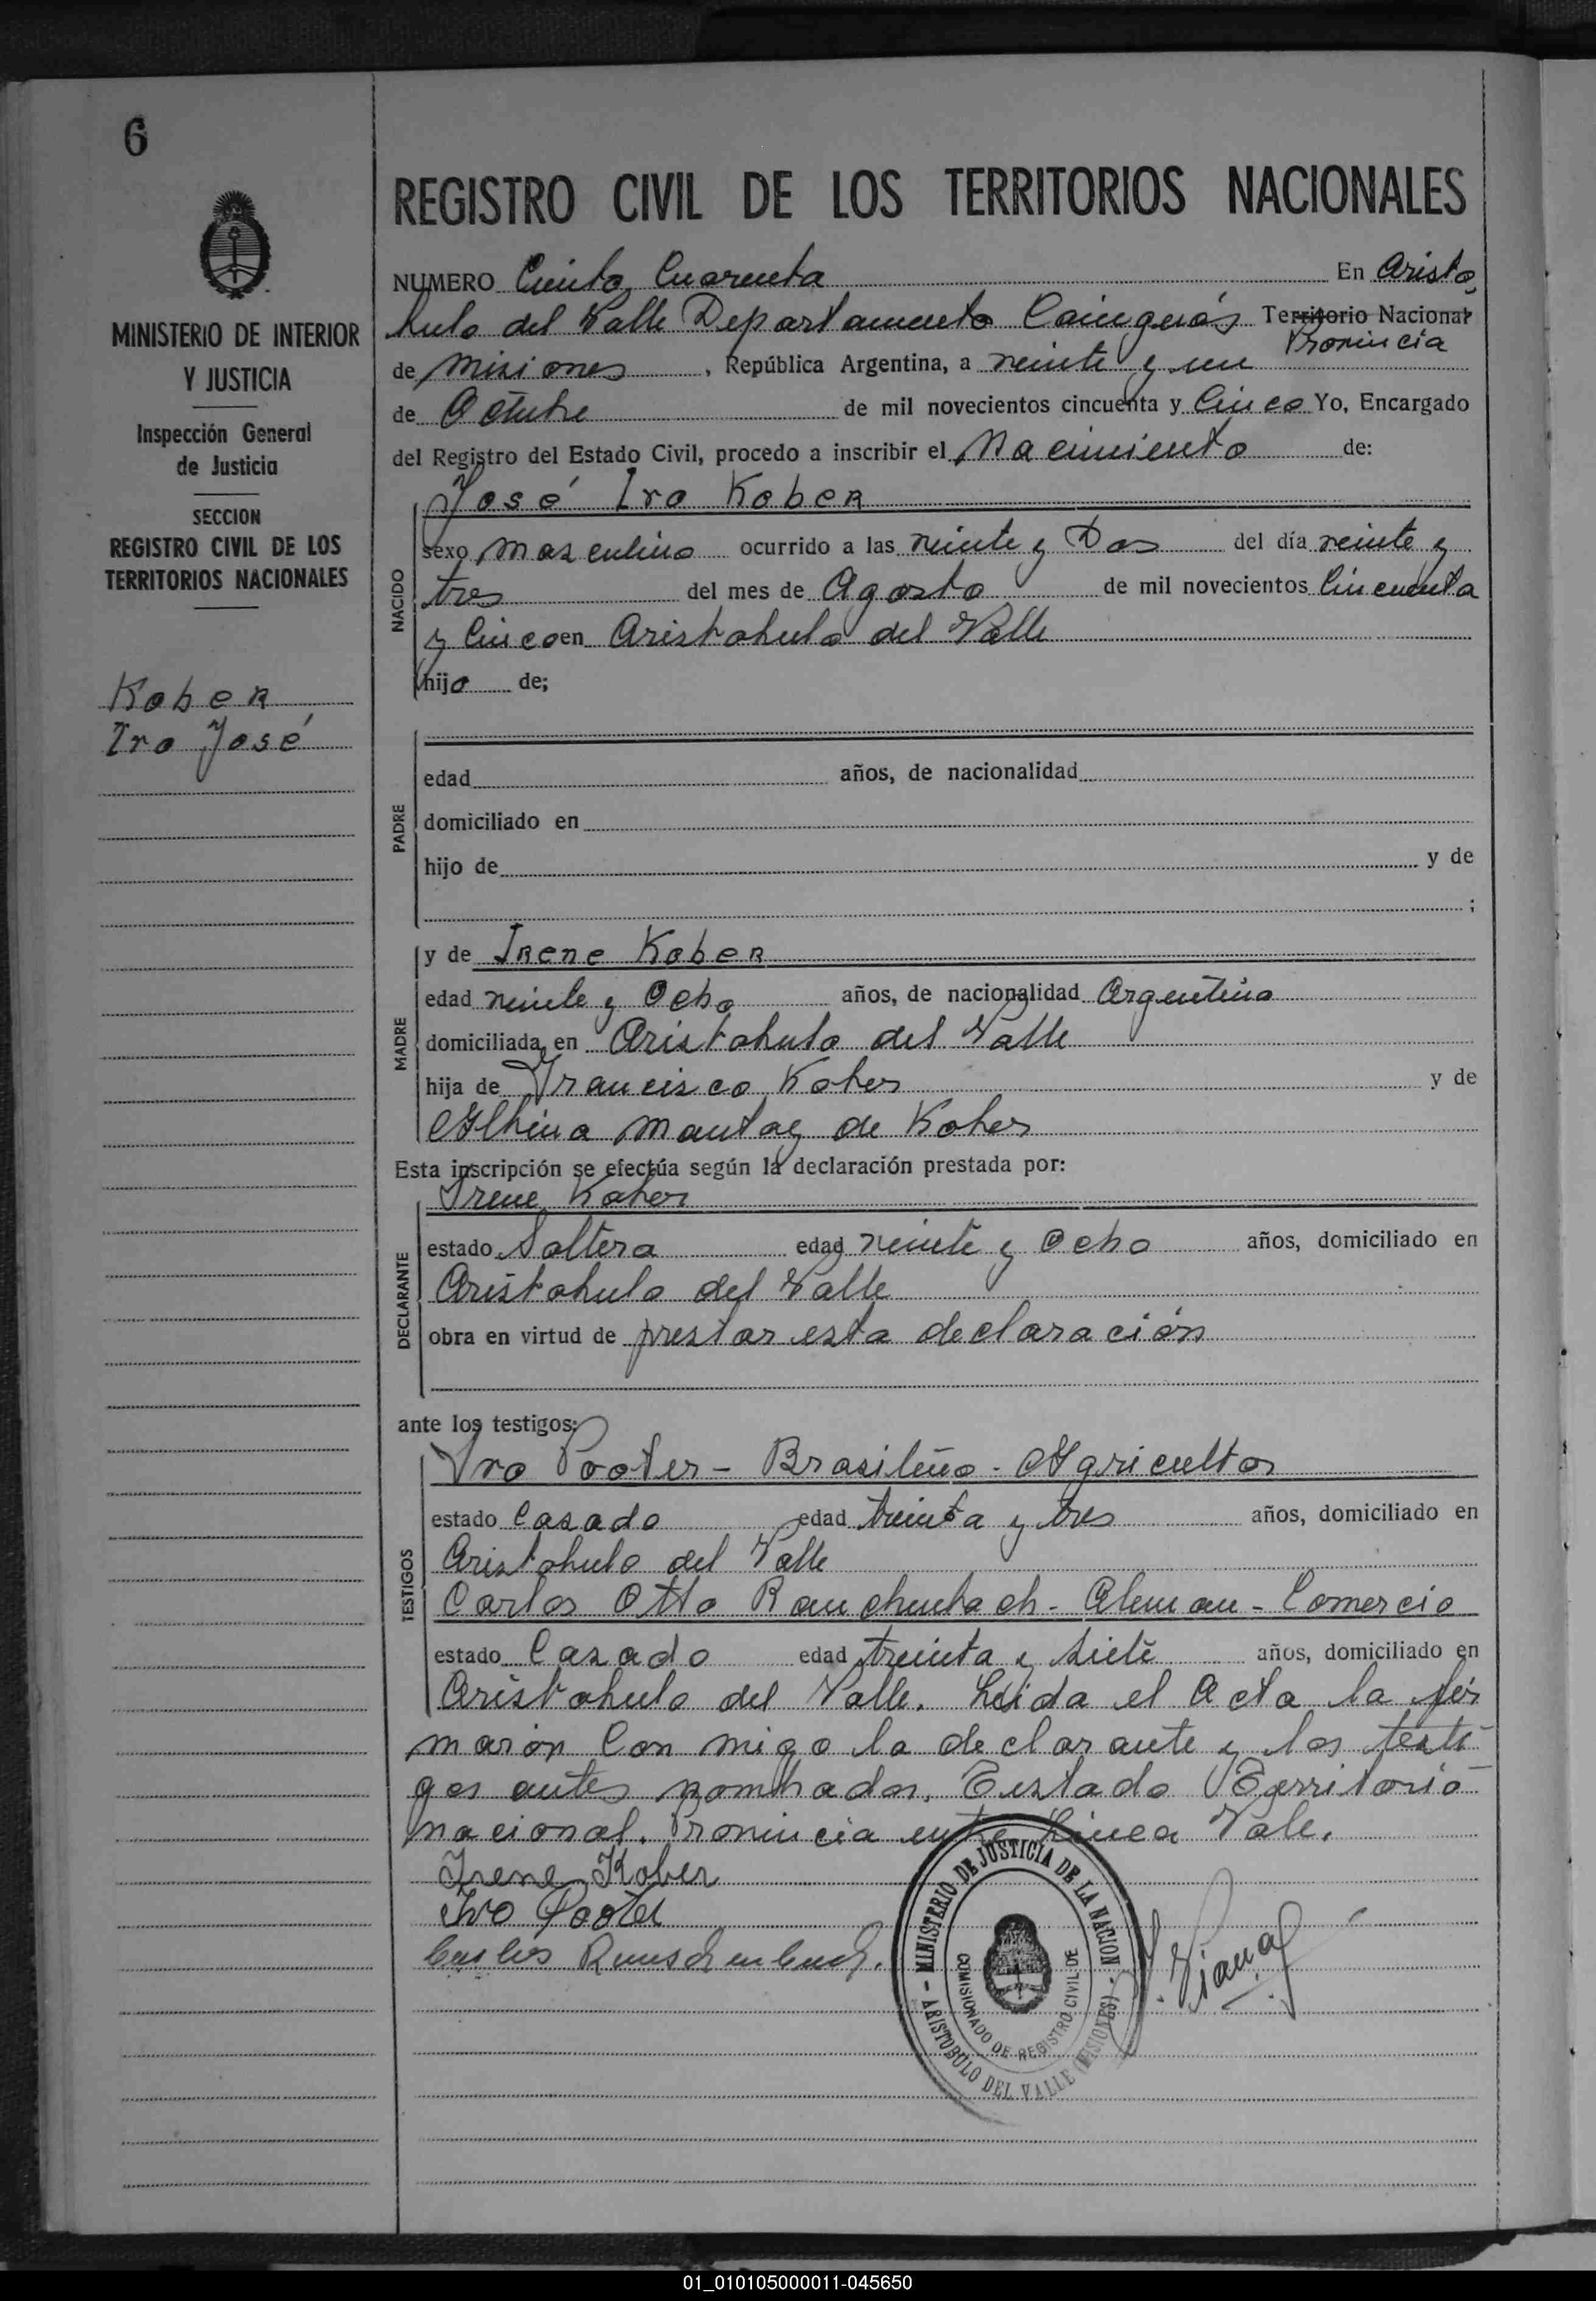 6
REGISTRO CIVIL DE LOS TERRITORIOS NACIONALES
MINISTERIO DE INTERIOR
Y JUSTICIA
Inspección General
de Justicia
SECCION
REGISTRO CIVIL DE LOS
TERRITORIOS NACIONALES
Kober
Ivo José
NUMERO Ciento Cuarenta En Aristo
bulo del Valle Departamento Cainguás Territorio Nacional
Provincia
de Misiones, República Argentina, a veinte y un
de Octubre de mil novecientos cincuenta y Cinco Yo, Encargado
del Registro del Estado Civil, procedo a inscribir el Nacimiento de:
José Ivo Kober
NACIDO
sexo masculino ocurrido a las veinte y Dos del día veinte y
tres del mes de Agosto de mil novecientos Cincuenta
y Cinco en Aristobulo del Valle
hijo de;
PADRE
edad años, de nacionalidad
domiciliado en
hijo de y de
;
MADRE
y de Irene Kober
edad veinte y Ocho años, de nacionalidad Argentina
domiciliada en Aristobulo del Valle
hija de Francisco Kober y de
Albina Mantay de Kober
Esta inscripción se efectúa según la declaración prestada por:
DECLARANTE
Irene Kober
estado Soltera edad veinte y Ocho años, domiciliado en
Aristobulo del Valle
obra en virtud de prestar esta declaración
ante los testigos:
TESTIGOS
Ivo Pooter - Brasileño - Agricultor
estado Casado edad treinta y tres años, domiciliado en
Aristobulo del Valle
Carlos Otto Rauchenbach - Aleman - Comercio
estado Casado edad treinta y siete años, domiciliado en
Aristobulo del Valle. Leida el Acta la fir
maron Con migo la declarante y los testi
gos antes nombrados. Testado Territorio
nacional. Provincia entre Linea Vale.
Irene Kober
Ivo Pooter
Carlos
MINISTERIO DE JUSTICIA DE LA NACION
COMISIONADO DE REGISTRO CIVIL DE
ARISTOBULO DEL VALLE (MISIONES)
01_010105000011-045650